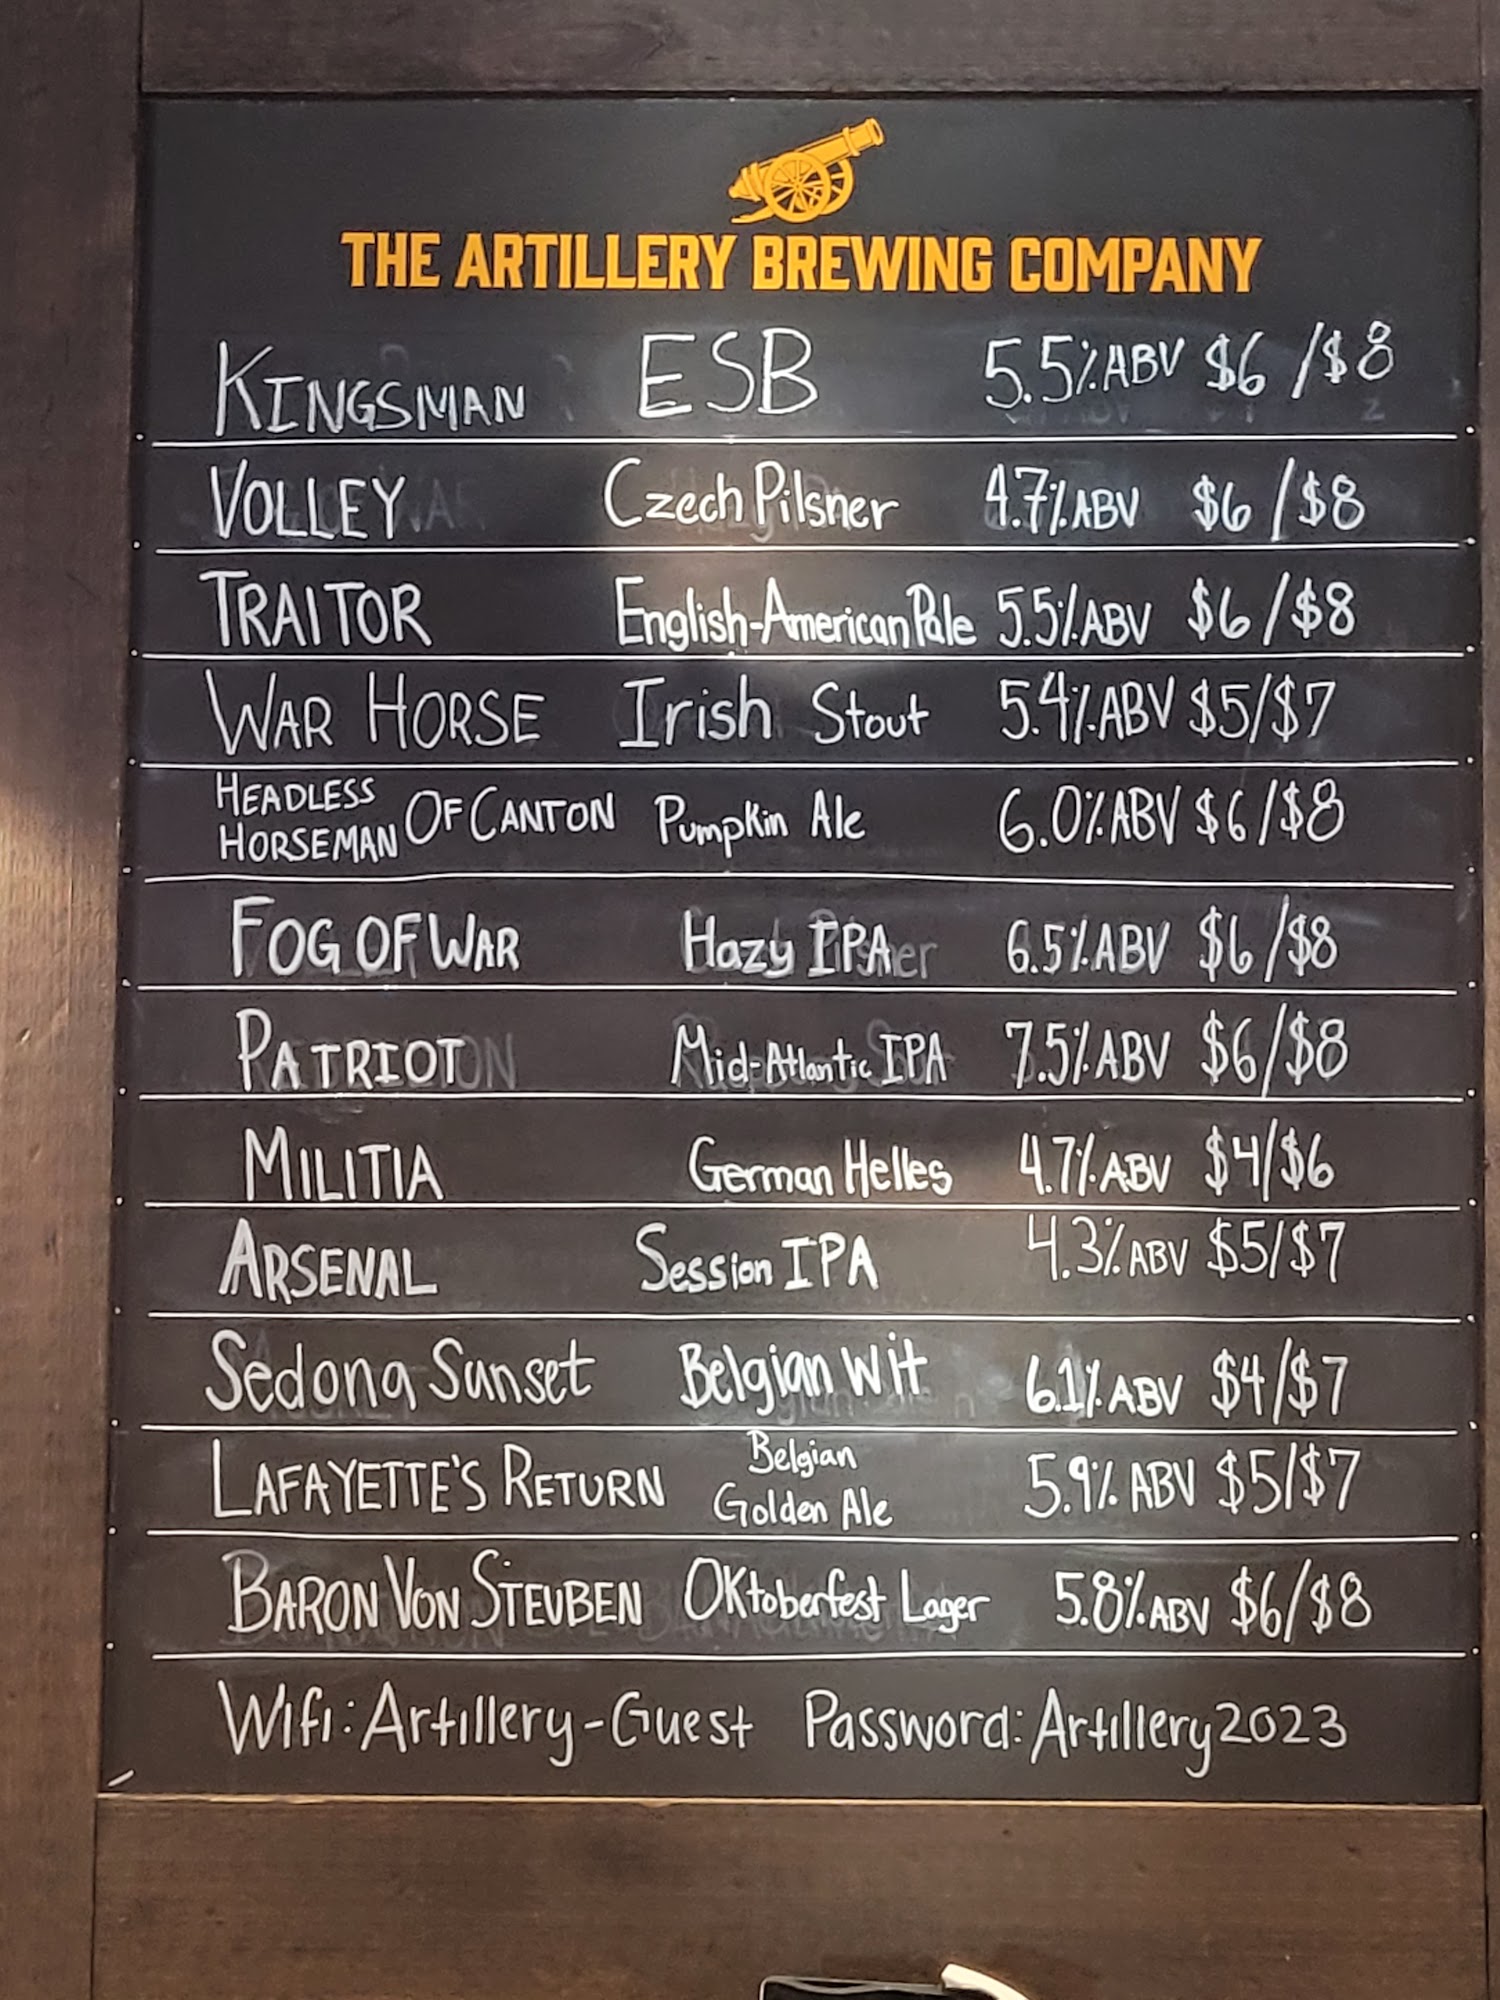 THE ARTILLERY BREWING COMPANY
KINGSMAN ESB 5.5% ABV $6 / $8
VOLLEY Czech Pilsner 4.7% ABV $6 / $8
TRAITOR English-American Pale 5.5% ABV $6 / $8
WAR HORSE Irish Stout 5.4% ABV $5/$7
HEADLESS HORSEMAN OF CANTON Pumpkin Ale 6.0% ABV $6/$8
FOG OF WAR Hazy IPA 6.5% ABV $6 /$8
PATRIOT Mid-Atlantic IPA 7.5% ABV $6/$8
MILITIA German Helles 4.7% ABV $4/$6
ARSENAL Session IPA 4.3% ABV $5/$7
Sedona Sunset Belgian Wit 6.1% ABV $4/$7
LAFAYETTE'S RETURN Belgian Golden Ale 5.9% ABV $5/$7
BARON VON STEUBEN OKtoberfest Lager 5.8% ABV $6/$8
Wifi: Artillery-Guest Password: Artillery2023